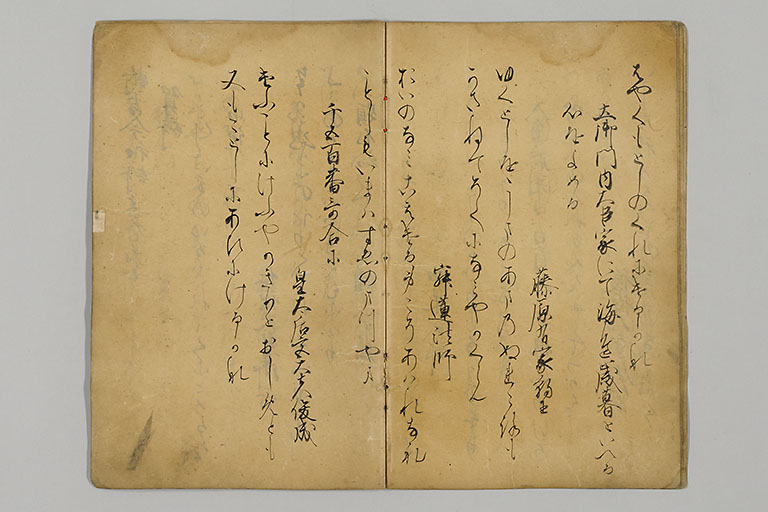 はやくもとしのくれにけるかな
土御門内大臣家にて海邊歳暮といへる
心をよめる
藤原有家朝臣
ゆくとしをこしまのあまのぬれ衣
かさねてそてになみやかくらん
寂蓮法師
おいのなみこえける身こそあはれなれ
ことしもいまはすゑのまつやま
千五百番哥合に
皇太后宮大夫俊成
けふことにけふやかきりとおしめとも
又もことしにあひにけるかな